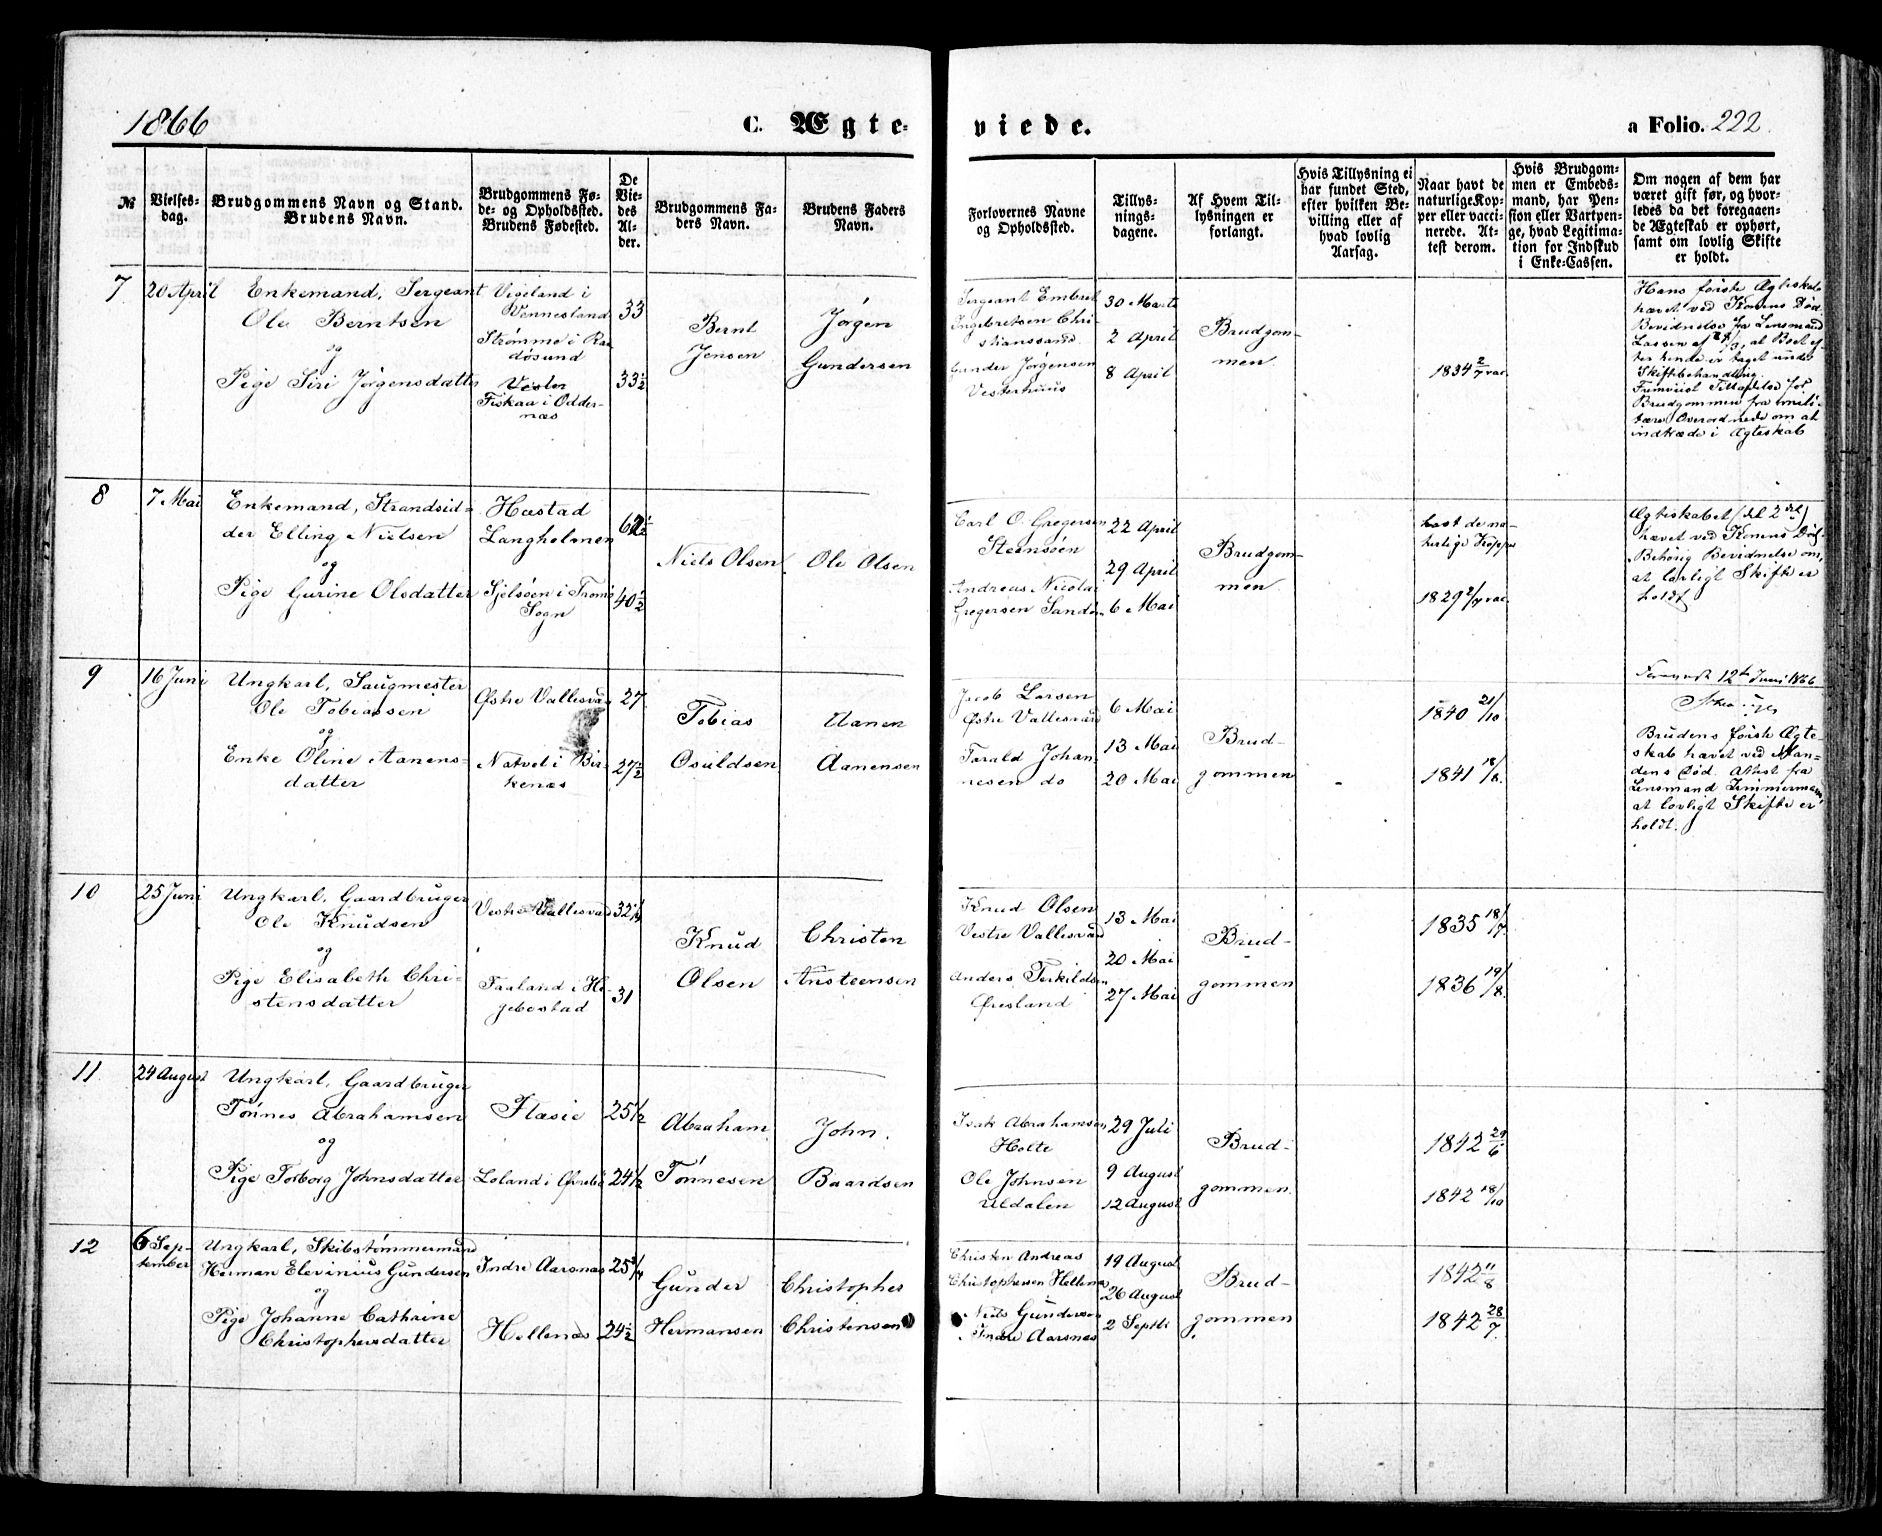 1866 C. Ægte-
viede. a Folio. 222.
№
Vielses-
dag.
Brudgommens Navn og Stand.
Brudens Navn.
Brudgommens Fø-
de- og Opholdssted.
Brudens Fødested.
De
Vie-
des
Al-
der.
Brudgommens Fa-
ders Navn.
Brudens Faders
Navn.
Forlovernes Navne
og Opholdssted.
Tillys-
nings-
dagene.
Af Hvem Til-
lysningen er
forlangt.
Hvis Tillysning ei
har fundet Sted,
efter hvilken Be-
villing eller af
hvad lovlig
Aarsag.
Naar havt de
naturlige Kop-
per eller vacci-
nerede. At-
test derom.
Hvis Brudgom-
men er Embeds-
mand, har Pen-
sion eller Vartpen-
ge, hvad Legitima-
tion for Indskud
i Enke-Cassen.
Om nogen af dem har
været gift før, og hvor-
ledes da det foregaaen-
de Ægteskab er ophørt,
samt om lovlig Skifte
er holdt.
7
20 April
Enkemand, Sergeant
Ole Berntsen
og
Pige Siri Jørgensdatter
Vigeland i
Vennesland
Strømme i Ran-
døsund
Vester
Fiskaa i Odder-
næs
33
33½
Bernt
Jensen
Jørgen
Gundersen
Sergeant Embret
Ingebretsen Chri-
stianssand.
Gunder Jørgensen
Vesterhuus
30 Marts
2 April
8 April
Brudgom-
men.
1834 2/7 vac.
Hans første Ægteskab
hævet ved Konens Død.
Bevidnelse fra Lensmand
Lassen af
at Boet ef-
ter hende er taget under
Skiftebehandling.
Fremvist Tilladelse for
Brudgommen fra mili-
tære Overordnede om at
indtræde i Ægteskab
8
7 Mai
Enkemand, Strandsid-
der Elling Nielsen
og
Pige Gurine Olsdatter
Hæstad
Langholmen
Sjelsøen i Tromø
Sogn
40½
Niels Olsen
Ole Olsen
Carl O. Gregersen
Steensøen
Andreas Nicolai
Gregersen Sandøen
22 April
29 April
6 Mai
Brudgom-
men.
havt de na-
turlige Kopper
1829 2/7 vac.
Ægteskabet (det 2det)
hævet ved Konens Død.
Behørig Bevidnelse om,
at lovligt Skifte er
holdt
9
16 Juni
Ungkarl, Saugmester
Ole Tobiassen
og
Enke Oline Aanens-
datter
Østre Vallesværd
Natvet i Bir-
kenæs
27
27½
Tobias
Osuldsen
Aanen
Aanensen
Jacob Larsen
Østre Vallesværd
Tarald Johan-
nesen do
6 Mai
13 Mai
20 Mai
Brud-
gommen
1840 21/10
1841 18/8.
12te Juni 1866
Brudens første Ægte-
skab hævet ved Man-
dens Død. Attest fra
Lensmand Zimmermann,
at lovligt Skifte er
holdt.
10
25 Juni
Ungkarl, Gaardbruger
Ole Knudsen
og
Pige Elisabeth Chri-
stensdatter
Vestre Vallesværd
Faaland i He-
gebostad
32¼
31
Knud
Olsen
Christen
Ansteensen
Knud Olsen
Vestre Vallesværd
Anders Terkildsen
Øresland
13 Mai
20 Mai
27 Mai
Brud-
gommen
1835 18/7.
1836 19/8.
11
24 August
Ungkarl, Gaardbruger
Tønnes Abrahamsen
og
Pige Torborg Johnsdatter
Flasie
Loland i Øvrebø
25½
24½
Abraham
Tønnesen
John.
Baardsen
Isak Abrahamsen
Holte
Ole Johnsen
Uldalen
29 Juli
9 August
12 August
Brud-
gommen.
1842 29/6
1842 18/10
12
6 Sep-
tember
Ungkarl, Skibstømmermand
Herman Elevinius Gundersen
og
Pige Johanne Cathrine
Christophersdatter
Indre Aarsnæs
Hellenæs
25¾
24½
Gunder
Hermansen
Christopher
Christensen
Christen Andreas
Christophersen Hellenæs
Niels Gundersen
Indre Aarsnæs
19 August
26 August
2 Septbr
Brud-
gommen
1842 11/8
1842 28/7.